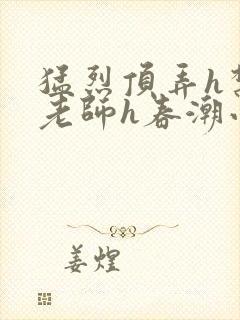 猛烈頂弄h
老師h春潮
姜煌